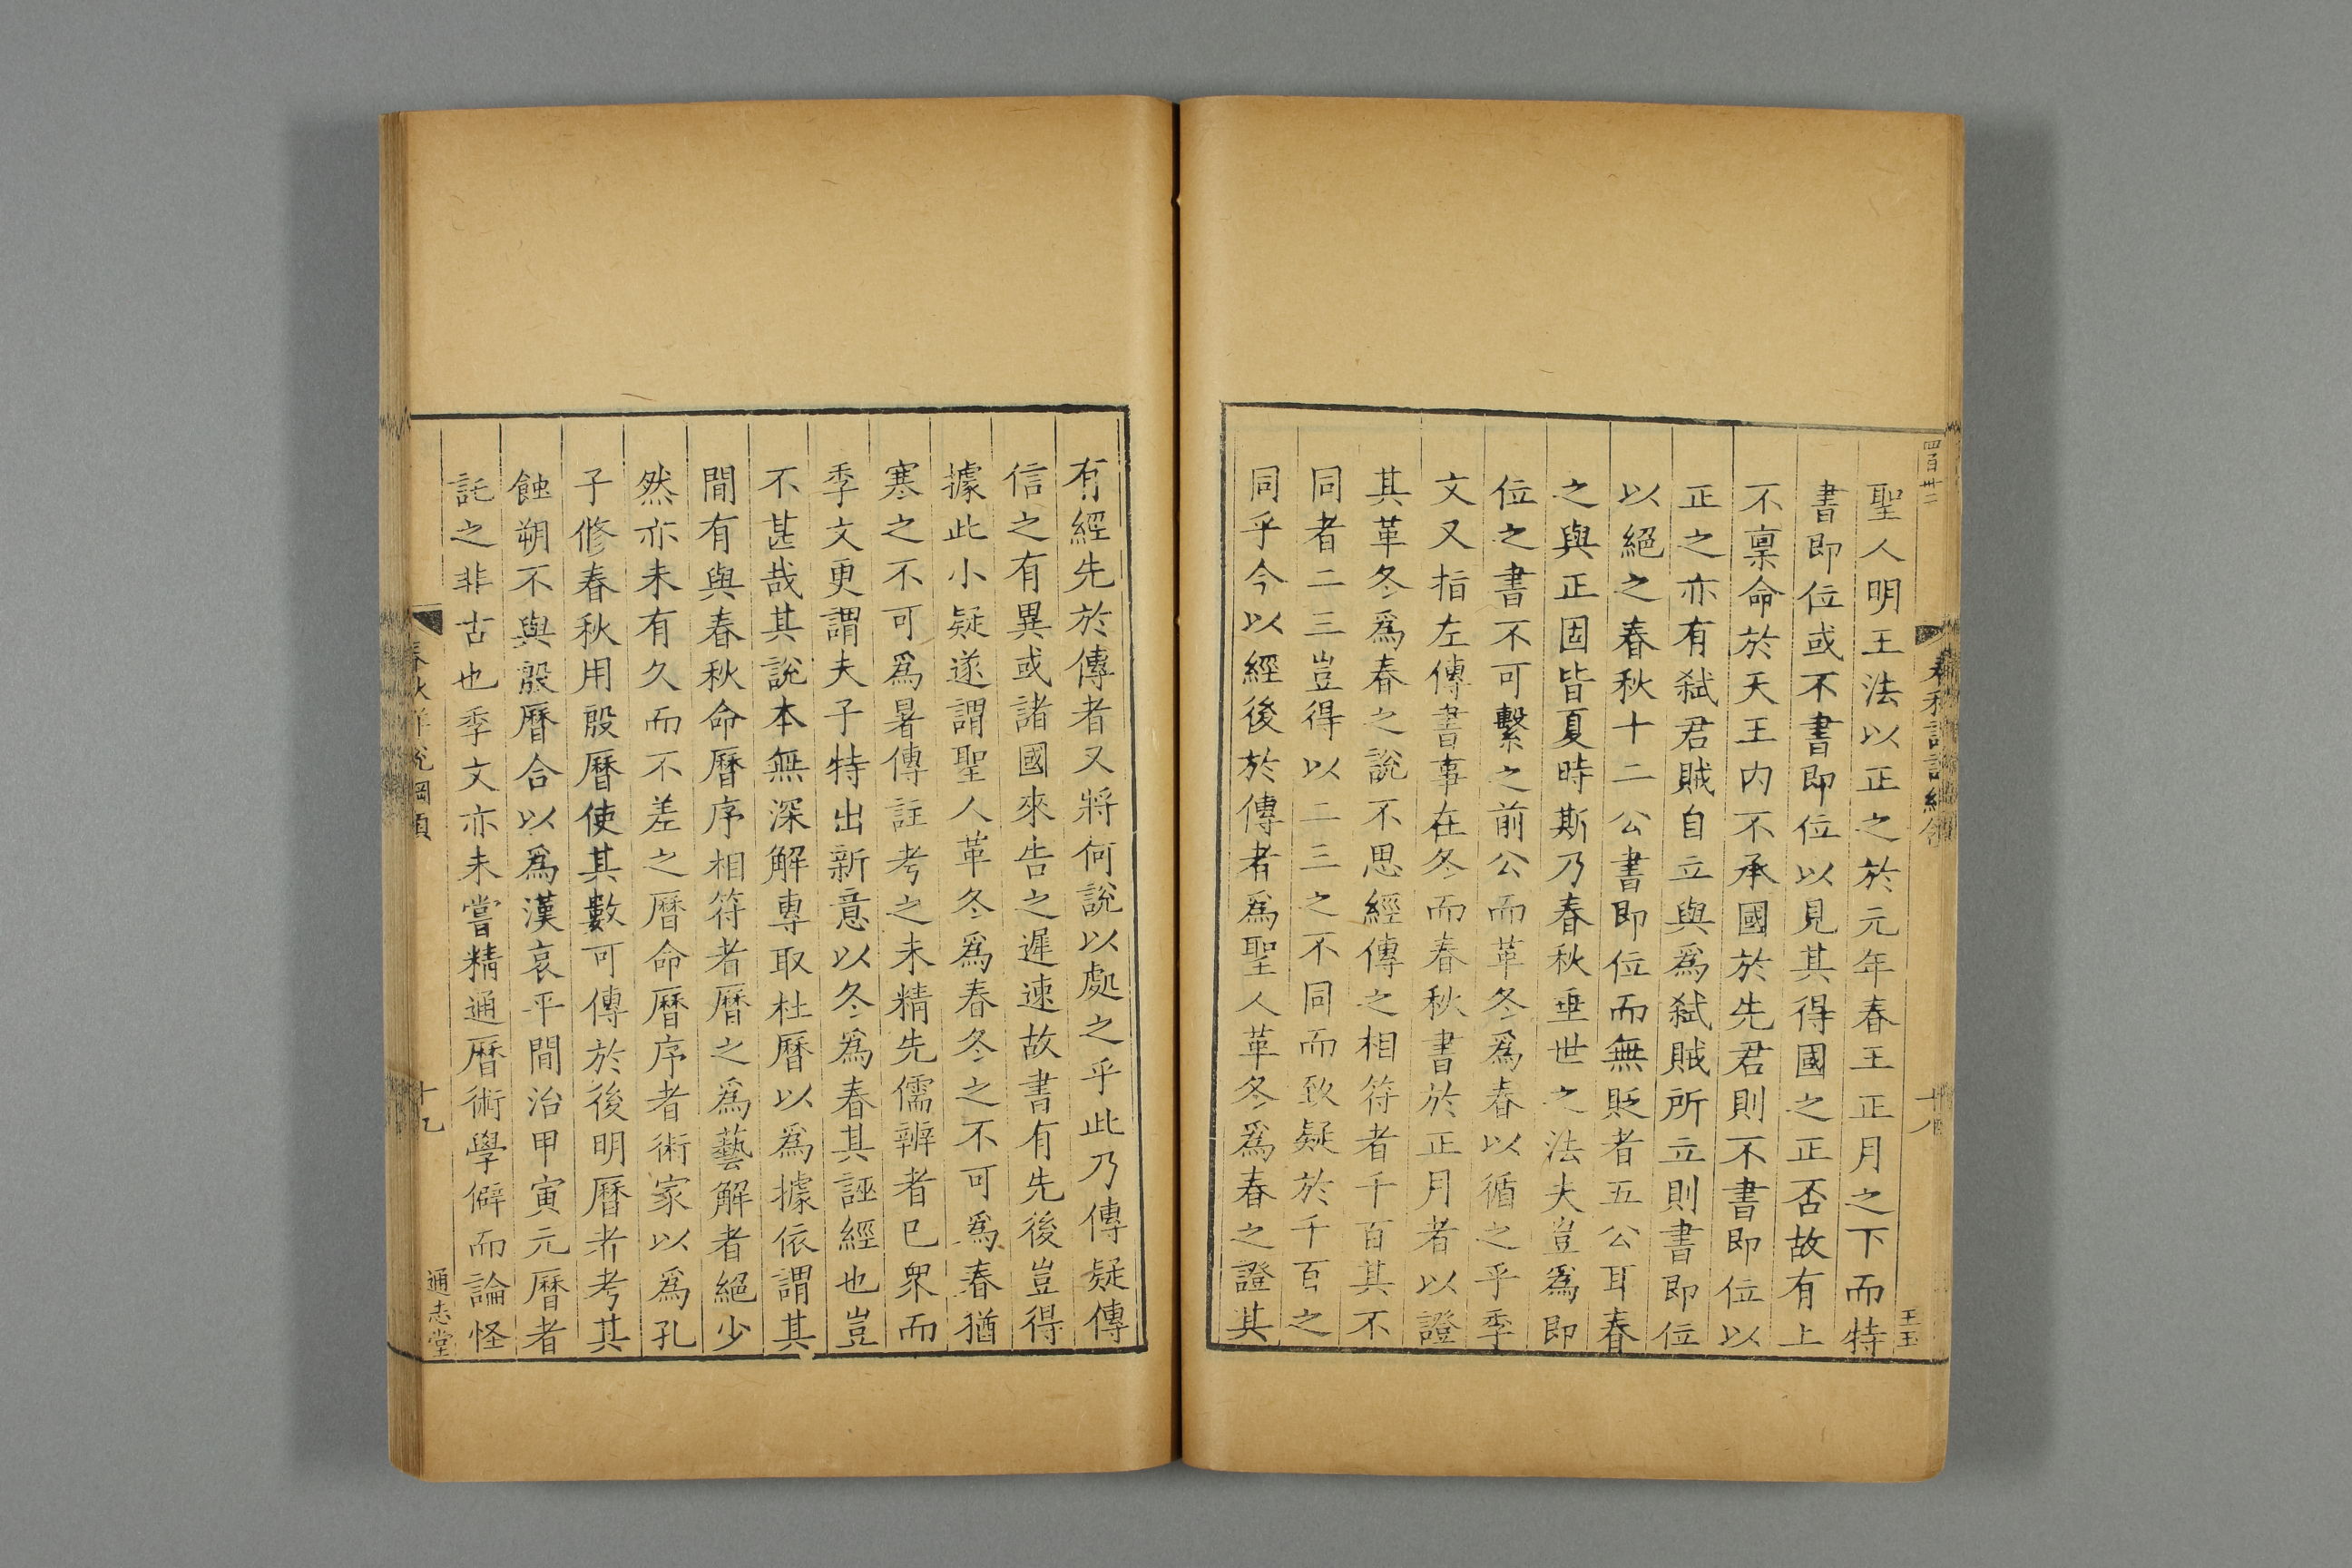 四百卅二
春秋詳說綱領
十八
王玉
聖人明王法以正之於元年春王正月之下而特
書即位或不書即位以見其得國之正否故有上
不稟命於天王內不承國於先君則不書即位以
正之亦有弑君賊自立與為弑賊所立則書即位
以絕之春秋十二公書即位而無貶者五公耳春
之與正固皆夏時斯乃春秋垂世之法夫豈為即
位之書不可繫之前公而革冬為春以循之乎季
文又指左傳書事在冬而春秋書於正月者以證
其革冬為春之說不思經傳之相符者千百其不
同者二三豈得以二三之不同而致疑於千百之
同乎今以經後於傳者為聖人革冬為春之證其
有經先於傳者又將何說以處之乎此乃傳疑傳
信之有異或諸國來告之遲速故書有先後豈得
據此小疑遂謂聖人革冬為春冬之不可為春猶
寒之不可為暑傳註考之未精先儒辨者已衆而
季文更謂夫子特出新意以冬為春其誣經也豈
不甚哉其說本無深解專取杜曆以為據依謂其
間有與春秋命曆序相符者曆之為藝解者絕少
然亦未有久而不差之曆命曆序者術家以為孔
子修春秋用殷曆使其數可傳於後明曆者考其
蝕朔不與殷曆合以為漢哀平間治甲寅元曆者
託之非古也季文亦未嘗精通曆術學僻而論怪
春秋詳說綱領
十九
通志堂